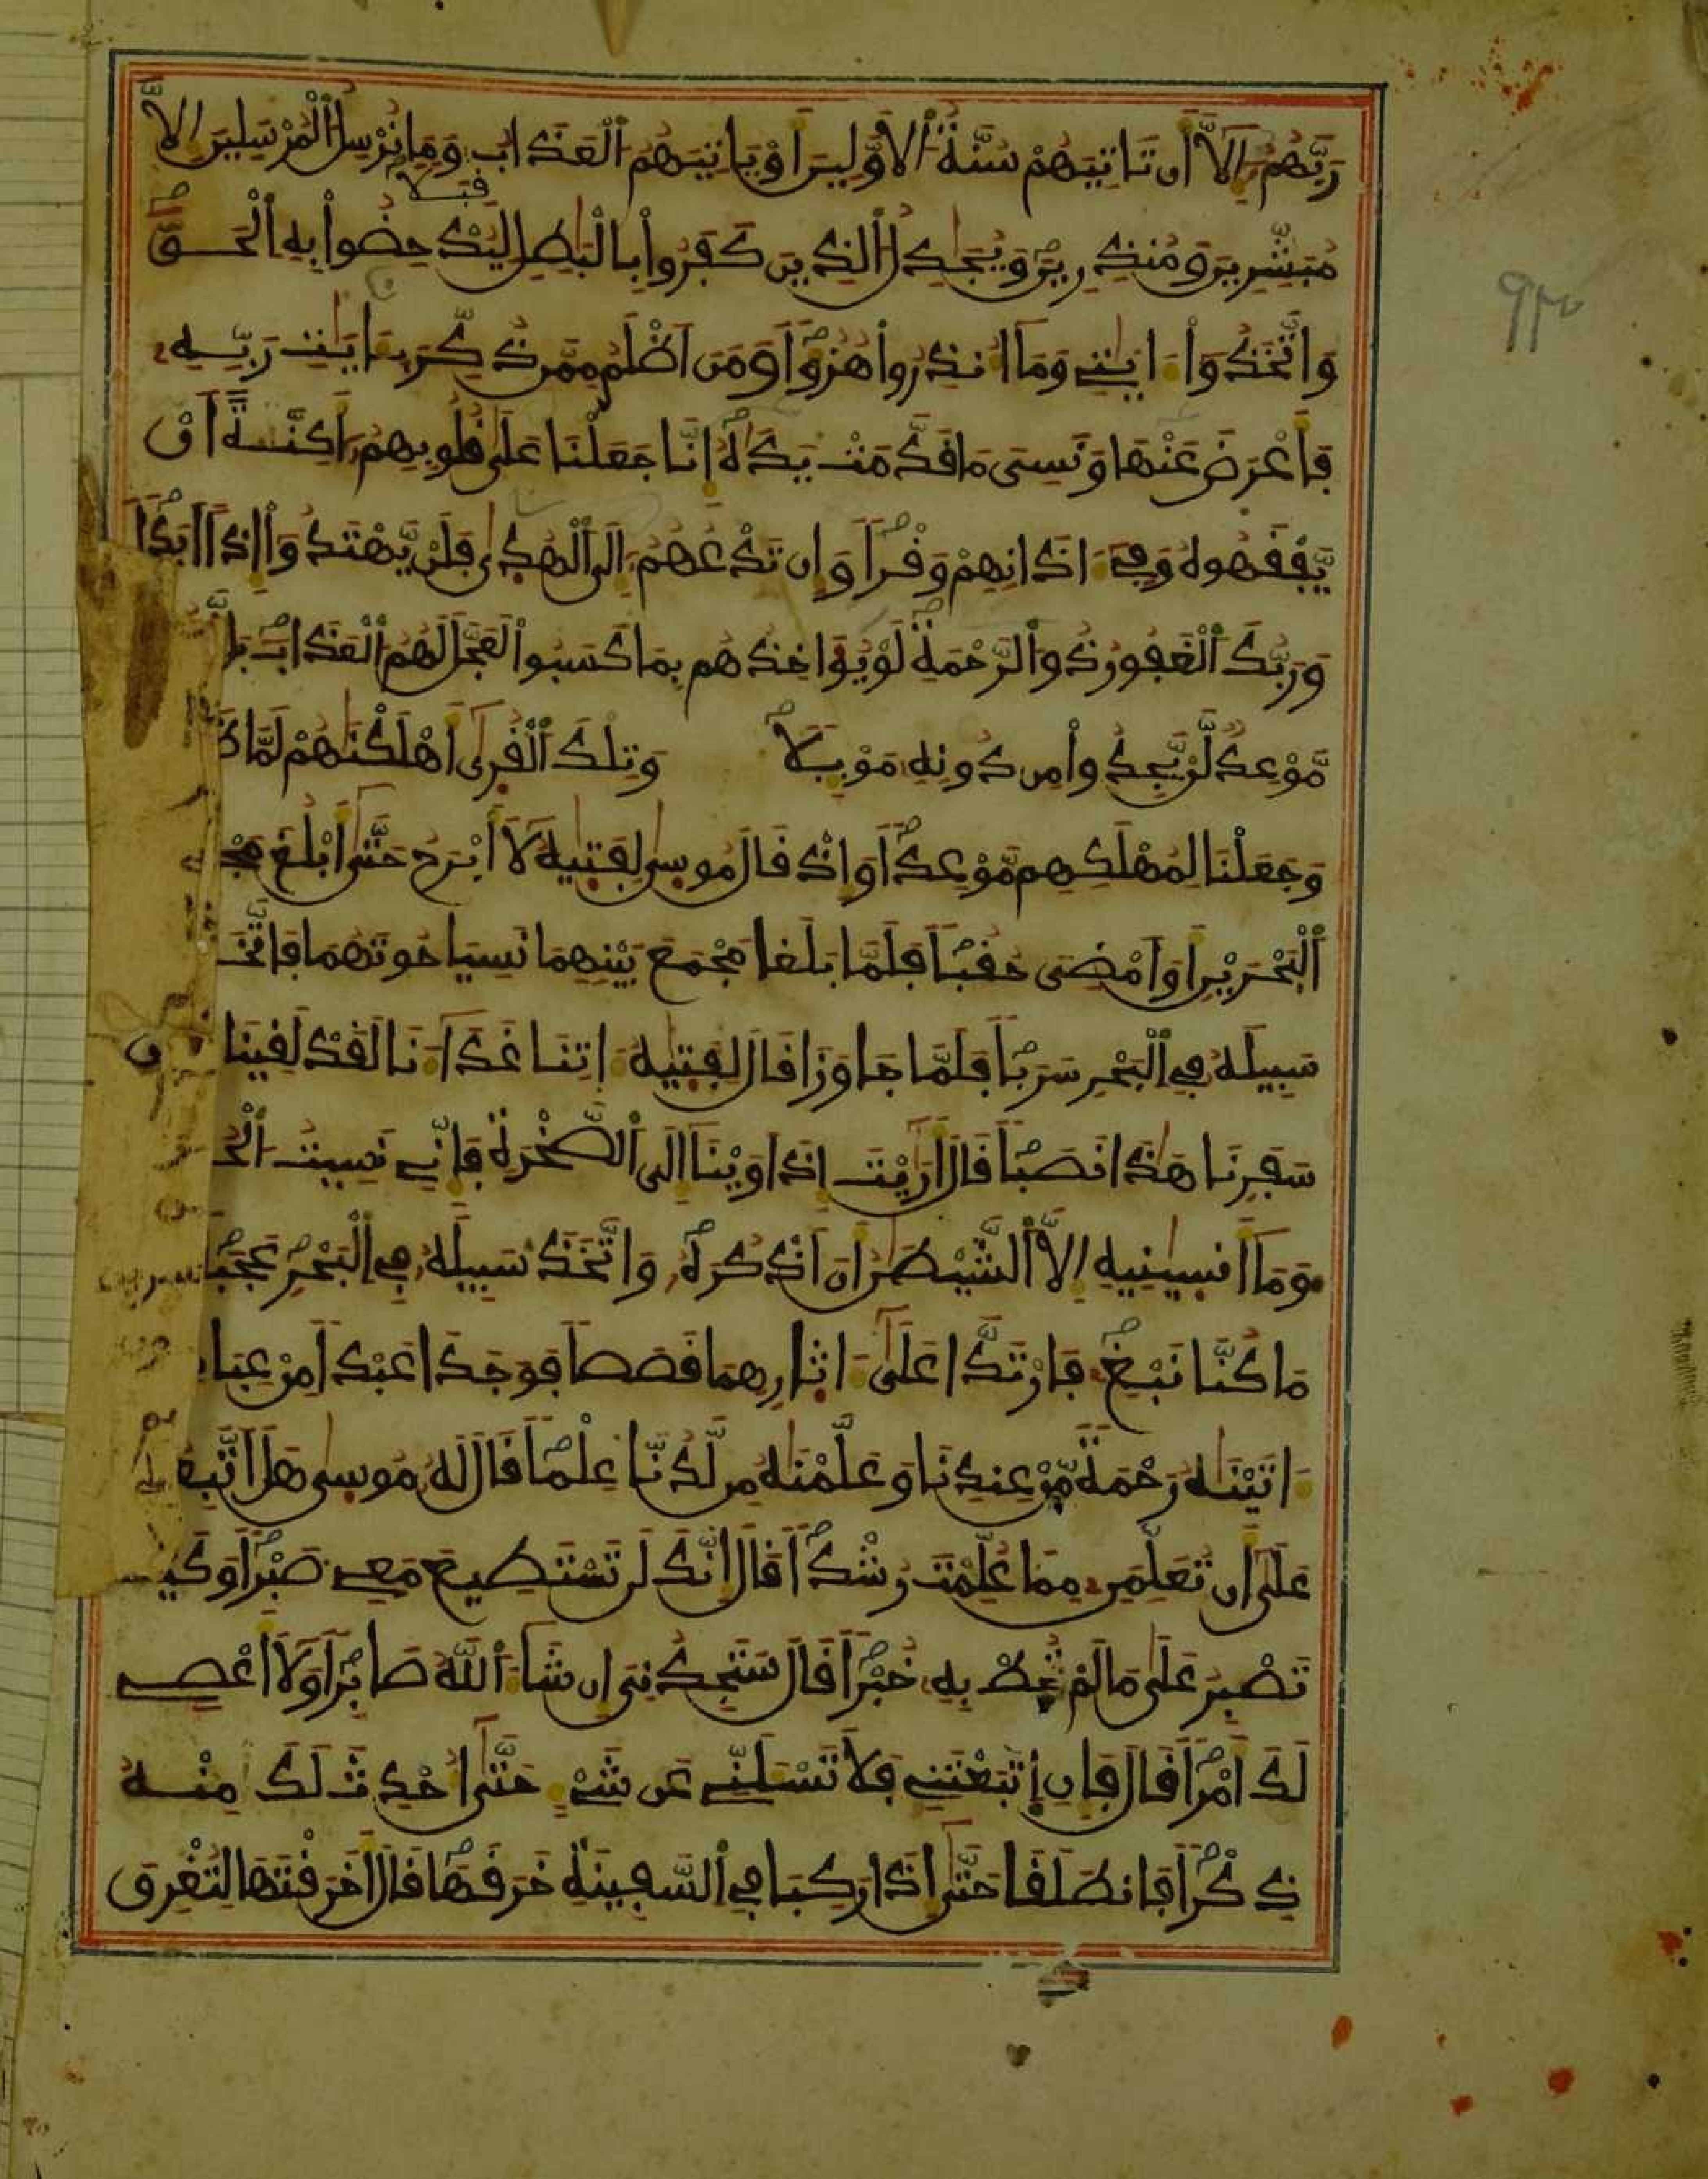 رَبَّهُمُۥٓ إِلَّآ أَن تَاتِيَهُمْ سُنَّةُ ٱلَاوَّلِينَ أَوْ يَاتِيَهُمُ ٱلْعَذَابُ قِبَلًا وَمَا نُرْسِلُ ٱلْمُرْسَلِينَ إِلَّا
مُبَشِّرِينَ وَمُنذِرِينَ وَيُجَٰدِلُ ٱلذِينَ كَفَرُوا۟ بِالْبَٰطِلِ لِيُدْحِضُوا۟ بِهِ ٱلْحَقَّ
وَاتَّخَذُوٓا۟ ءَايَٰتِے وَمَآ أُنذِرُوا۟ هُزُؤًا وَمَنَ اَظْلَمُ مِمَّن ذُكِّرَ بِـَٔايَٰتِ رَبِّهِۦ
فَأَعْرَضَ عَنْهَا وَنَسِىَ مَا قَدَّمَتْ يَدَٰهُ إِنَّا جَعَلْنَا عَلَىٰ قُلُوبِهِمُۥٓ أَكِنَّةً أَنْ
يَّفْقَهُوهُ وَفِےٓ ءَاذَانِهِمْ وَقْرًا وَإِن تَدْعُهُمُۥٓ إِلَى ٱلْهُدَىٰ فَلَنْ يَّهْتَدُوٓا۟ إِذًا اَبَدًا
وَرَبُّكَ ٱلْغَفُورُ ذُو ٱلرَّحْمَةِ لَوْ يُوَاخِذُهُم بِمَا كَسَبُوا۟ لَعَجَّلَ لَهُمُ ٱلْعَذَابَ بَل
مَّوْعِدٌ لَّنْ يَّجِدُوا۟ مِن دُونِهِۦ مَوْئِلًا وَتِلْكَ ٱلْقُرَىٰٓ أَهْلَكْنَٰهُمْ لَمَّا
وَجَعَلْنَا لِمُهْلَكِهِم مَّوْعِدًا وَإِذْ قَالَ مُوسَىٰ لِفَتَىٰهُ لَآ أَبْرَحُ حَتَّىٰٓ أَبْلُغَ مَجْ
ٱلْبَحْرَيْنِ أَوَ اَمْضِىَ حُقُبًا فَلَمَّا بَلَغَا مَجْمَعَ بَيْنِهِمَا نَسِيَا حُوتَهُمَا فَاتَّخَ
سَبِيلَهُۥ فِے ٱلْبَحْرِ سَرَبًا فَلَمَّا جَاوَزَا قَالَ لِفَتَىٰهُ ءَاتِنَا غَدَآءَنَا لَقَدْ لَقِينَا
سَفَرِنَا هَٰذَا نَصَبًا قَالَ أَرَٰيْتَ إِذَ اَوَيْنَآ إِلَى ٱلصَّخْرَةِ فَإِنِّے نَسِيتُ ٱلْحُ
وَمَآ أَنسَىٰنِيهِ إِلَّا ٱلشَّيْطَٰنُ أَنَ اَذْكُرَهُۥ وَاتَّخَذَ سَبِيلَهُۥ فِے ٱلْبَحْرِ عَجَبًا
مَا كُنَّا نَبْغِ فَارْتَدَّا عَلَىٰٓ ءَاثَارِهِمَا قَصَصًا فَوَجَدَا عَبْدًا مِّنْ عِبَا
ءَاتَيْنَٰهُ رَحْمَةً مِّنْ عِندِنَا وَعَلَّمْنَٰهُ مِن لَّدُنَّا عِلْمًا قَالَ لَهُۥ مُوسَىٰ هَلَ اَتَّبِعُ
عَلَىٰٓ أَن تُعَلِّمَنِۦ مِمَّا عُلِّمْتَ رُشْدًا قَالَ إِنَّكَ لَن تَسْتَطِيعَ مَعِے صَبْرًا وَكَيْ
تَصْبِرُ عَلَىٰ مَا لَمْ تُحِطْ بِهِۦ خُبْرًا قَالَ سَتَجِدُنِىَ إِن شَآءَ ٱللَّهُ صَابِرًا وَلَآ أَعْصِے
لَكَ أَمْرًا قَالَ فَإِنِ اِتَّبَعْتَنِے فَلَا تَسْـَٔلَنِّے عَن شَےْءٍ حَتَّىٰٓ أُحْدِثَ لَكَ مِنْهُ
ذِكْرًا فَانطَلَقَا حَتَّىٰٓ إِذَا رَكِبَا فِے ٱلسَّفِينَةِ خَرَقَهَا قَالَ أَخَرَقْتَهَا لِتُغْرِقَ